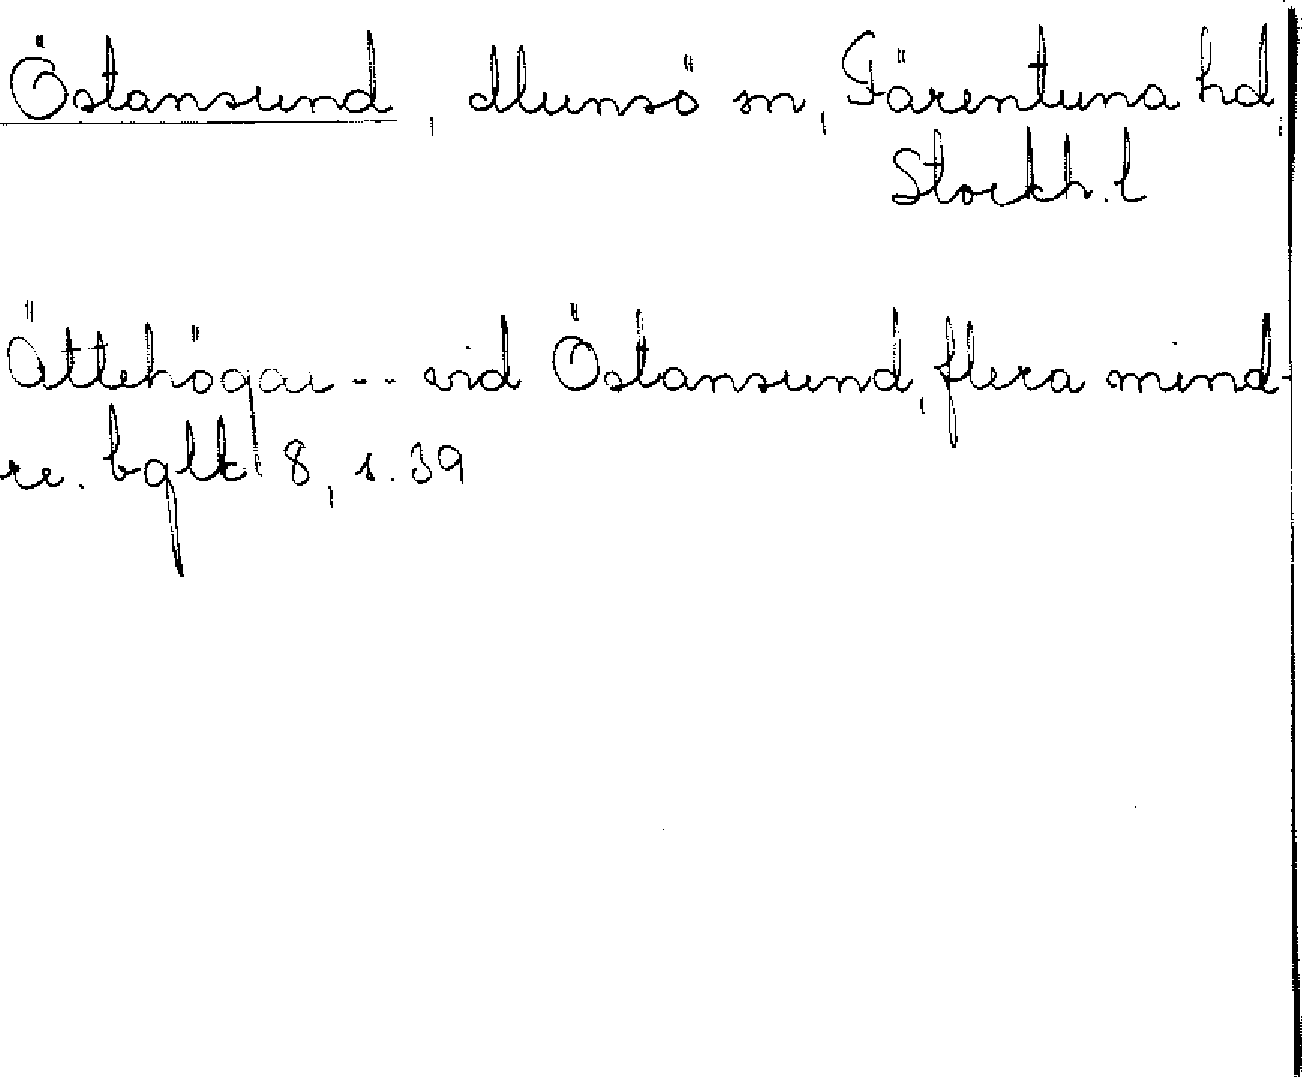 Östansund, Munsö sn, Färentuna hd,
Stockh. l
Ättehögar -- vid Östansund, flera mind-
re. bglk 8, s. 39